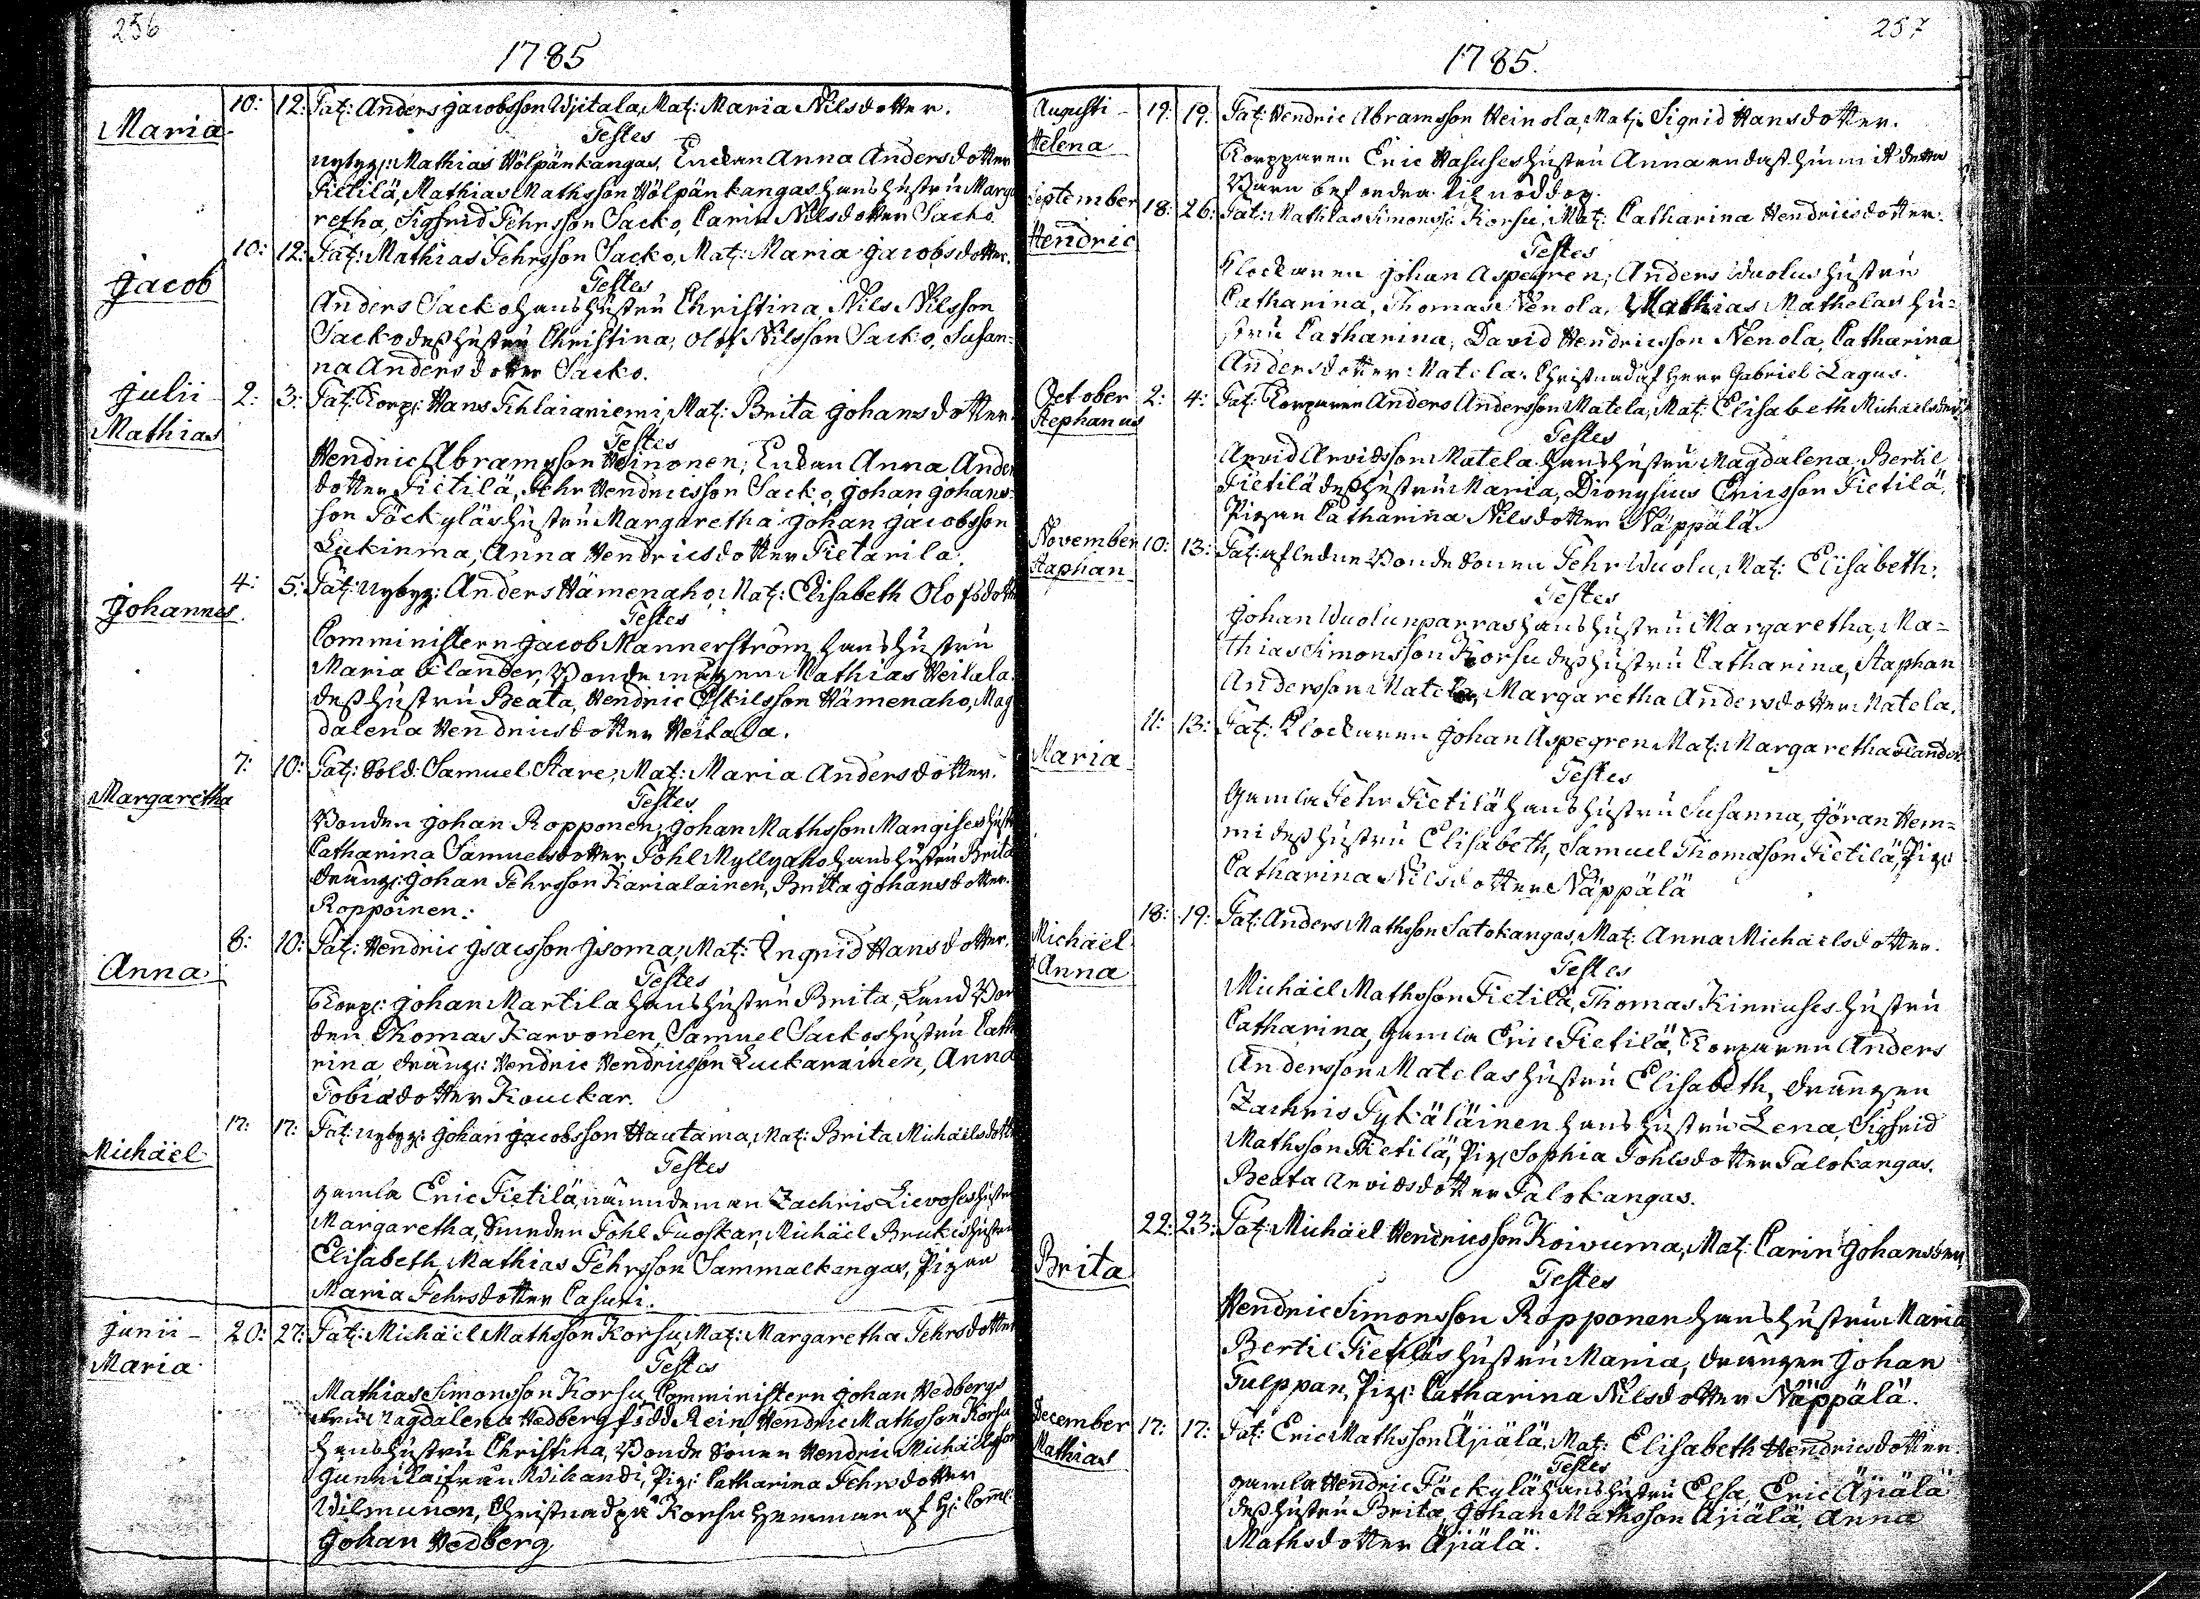 256
1785
Maria
10: 12: Pat: Anders Jacobsson Ujitala, Mat: Maria Nilsdotter.
Testes
nybyg: Mathias Hölpänkangas, Enckan Anna Andersdotter
Pietilä, Mathias Mathsson Hölpänkangas hans hustru Marga
retha, Sigfrid Pehrsson Sacko, Carin Nilsdotter Sacko
Jacob
10: 12: Pat: Mathias Pehrsson Sacko, Mat: Maria Jacobsdotter.
Testes
Anders Sacko hans hustru Christina, Nils Nilsson
Sacko dess hustru Christina, Olof Nilsson Sacko, Susan-
na Andersdotter Sacko.
Julii
Mathias
2: 3: Pat: Torp: Hans Pihlaianiemi, Mat: Brita Johansdotter.
Testes
Hendric Abramsson Heinonen, Enckan Anna Anders
dotter Pietilä, Pehr Hendricsson Sacko, Johan Johans-
son Päckyläs hustru Margaretha Johan Jacobsson
Lukinma, Anna Hendricsdotter Pietarila.
Johannes
4: 5: Pat: nybyg: Anders Hämenaho, Mat: Elisabeth Olofsdott
Testes
Comministern Jacob Mannerström hans hustru
Maria Elander, Bonde Mathias Heikala
dess hustru Beata, Hendric Eskilsson Hämenaho, Mag
dalena Hendricsdotter Heikala.
Margaretha
7: 10: Pat: Sold: Samuel Stare, Mat: Maria Andersdotter.
Testes
Bonden Johan Ropponen, Johan Mathsson Mangises hust
Catharina Samuelsdotter, Pohl Myllyaho hans hustru Brita
dräng: Johan Pehrsson Karialainen, Britta Johansdotter
Roppoinen.
Anna
8: 10: Pat: Hendric Jsacsson Jsoma, Mat: Ingrid Hansdotter.
Testes
Torp: Johan Martila hans hustru Brita, Land Bon
den Thomas Karvonen, Samuel Sackos hustru Cath
rina, dräng: Hendric Hendricsson Luckarainen, Anna
Tobiædotter Kouckar.
Michäel
17: 17: Pat: nybyg: Johan Jacobsson Hautama, Mat: Brita Michäelsdott
Testes
gamla Eric Pietilä, nämndeman Zachris Lievoses hustru
Margaretha, Pohl Puoskar, Michäel Brukes hustru
Elisabeth, Mathias Pehrsson Sammalkangas, Pigan
Maria Pehrsdotter Casuri.
Junii
Maria
20: 27: Pat: Michäel Mathsson Korsu, Mat: Margaretha Pehrsdotter
Testes
Mathias Simonsson Korsu, Comministern Johan Hedbergs
fru Magdalena Hedberg född Rein, Hendric Mathsson Korsu
hans hustru Christina, Bonde Sonen Hendric Michäelsson
Gunnila ifrån Wihandi, Pig: Catharina Pehrsdotter
Wilmunen, Christnad på Korsu Hemman af H: Com̃:
Johan Hedberg
257
1785.
Augusti
Helena
19: 19: Pat: Hendric Abramsson Heinola, Mat: Sigrid Hansdotter.
Torpparen Eric Hasuses hustru Anna endast hunnit detta
Barn befordra til nöddop.
September
Hendric
18: 26: Pat: Mathias Simonss: Korsu, Mat: Catharina Hendricsdotter.
Testes
Klockaren Johan Aspegren, Anders Wuolus hustru
Catharina, Thomas Nenola, Mathias Mathelas hu-
stru Catharina, David Hendricsson Nenola, Catharina
Andersdotter Matela. Christnad af Herr Gabriel Lagus.
October
Stephanus
2: 4: Pat: Torparen Anders Andersson Matela, Mat: Elisabeth Michäelsdott
Testes
Arvid Arvidsson Matela hans hustru Magdalena, Bertil
Pietilä dess hustru Maria, Dionysius Ericsson Pietilä,
Pigan Catharina Nilsdotter Näppälä.
November
Staphan
10: 13: Pat: afledne Bonde Sonen Pehr Wuolu, Mat: Elisabeth:
Testes
Johan Wuolunparras hans hustru Margaretha, Ma-
thias Simonsson Korsu dess hustru Catharina, Staphan
Andersson Matela, Margaretha Andersdotter Matela.
Maria
11: 13: Pat: Clockaren Johan Aspegren Mat: Margaretha Elander
Testes
Gamla Pehr Pietilä hans hustru Susanna, Jöran Hem-
mi dess hustru Elisabeth, Samuel Thomasson Pietilä, Pig:
Catharina Nilsdotter Näppälä
Michäel
& Anna
18: 19: Pat: Anders Mathsson Satokangas, Mat: Anna Michäelsdotter.
Testes
Michäel Mathsson Pietilä, Thomas Kinnuses hustru
Catharina, gamla Eric Pietilä, Torparen Anders
Andersson Matelas hustru Elisabeth, drängen
Zachris Pykäläinen hans hustru Lena, Sigfrid
Mathsson Pietilä, Pig: Sophia Pohlsdotter Palokangas.
Beata Arvidsdotter Palokangas.
Brita
22: 23: Pat: Michäel Hendricsson Koivuma, Mat: Carin Johansdotter
Testes
Hendric Simonsson Ropponen hans hustru Maria
Bertil Pietiläs hustru Maria, drängen Johan
Tulppan, Pig: Catharina Nilsdotter Näppälä.
December
Mathias
17: 17: Pat: Eric Mathsson Äjälä, Mat: Elisabeth Hendricsdotter
Testes
gamla Hendric Päckylä hans hustru Elsa, Eric Äjälä
dess hustru Brita, Johan Mathsson Äjälä, Anna
Mathsdotter Äjälä.